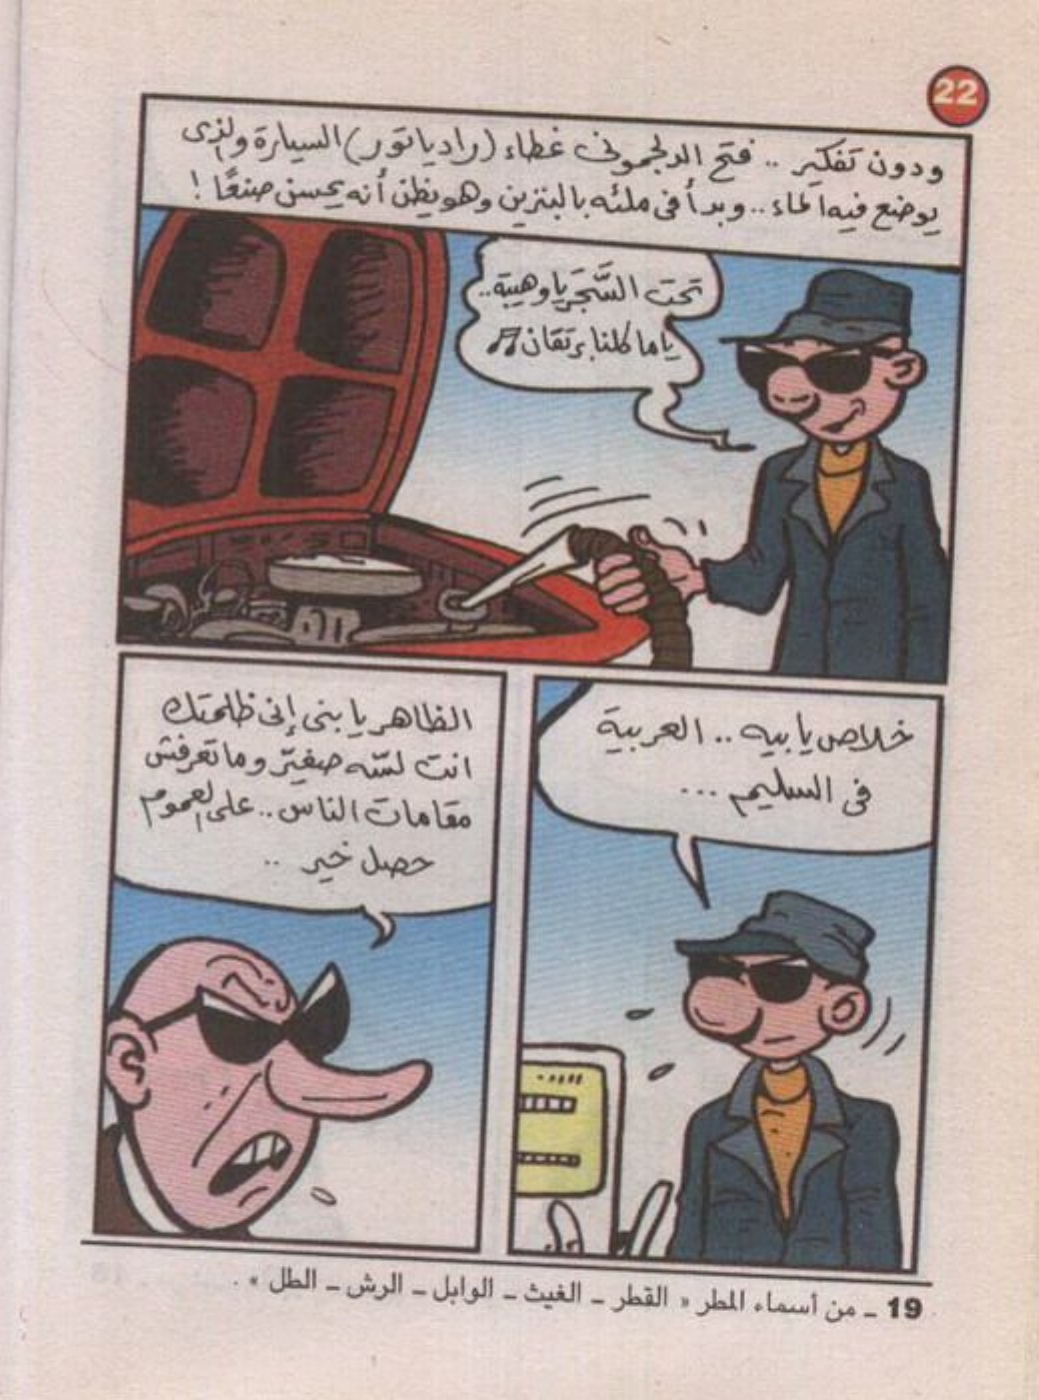 22
ودون تفكير .. فتح الدلجموني غطاء (رادياتور) السيارة والذى
يوضع فيه الماء .. وبدأ فى ملئه بالبنزين وهو يظن أنه يحسن صنعًا !
تحت السَّجَر يا وهيبة..
ياما كلنا برتقان
خلاص يا بيه .. العربية
فى السليم ...
الظاهر يا بنى إنى ظلمتك
انت لسّه صغيّر وما تعرفش
مقامات الناس .. على العموم
حصل خير ..
19 ـ من أسماء المطر « القطر ـ الغيث ـ الوابل ـ الرش ـ الطل » .